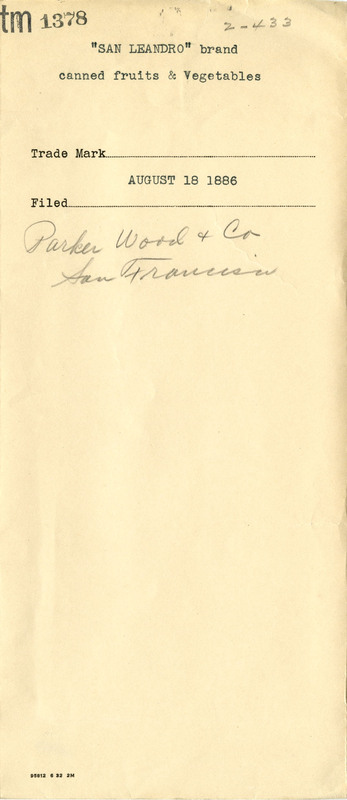 tm 1378
2-433
"SAN LEANDRO" brand
canned fruits & Vegetables
Trade Mark
AUGUST 18 1886
Filed
Parker Wood & Co
San Francisco
95912 6 32 2M